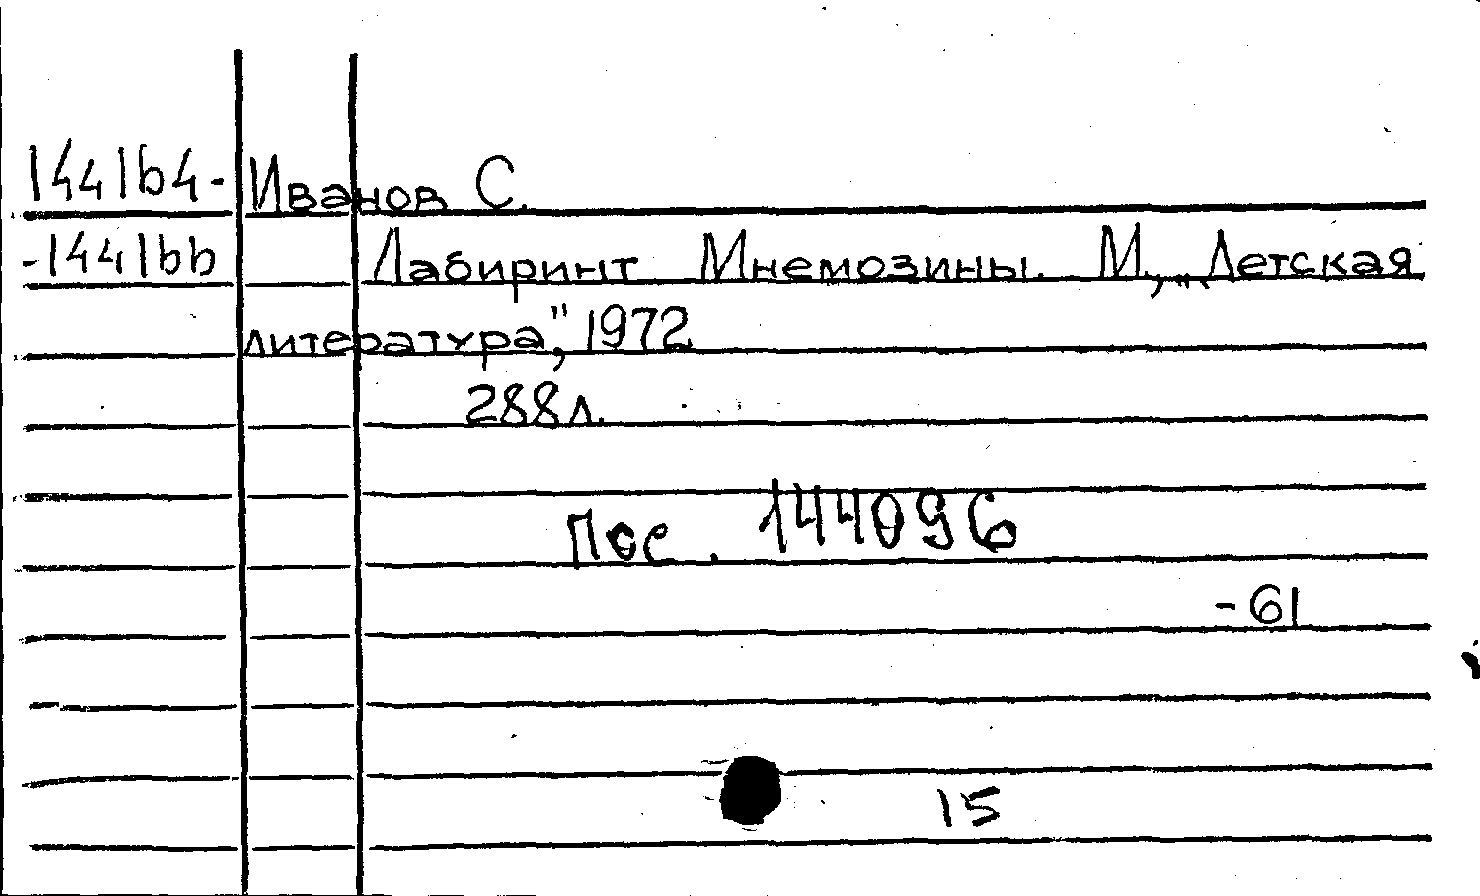 144164- Иванов С.
-144166 Лабиринт Мнемозины. М., „Детская
литература", 1972
288 л.
Пос. 144096
-61
15